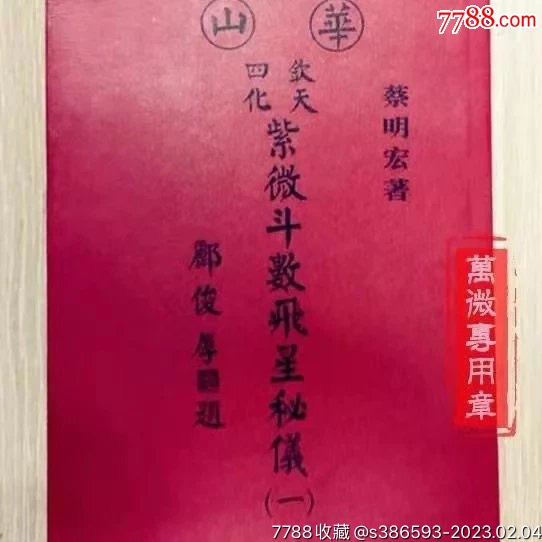 7788.com
華山
蔡明宏著
欽天
四化
紫微斗數飛星秘儀(一)
俊
萬微專用章
7788收藏 @s386593-2023.02.04